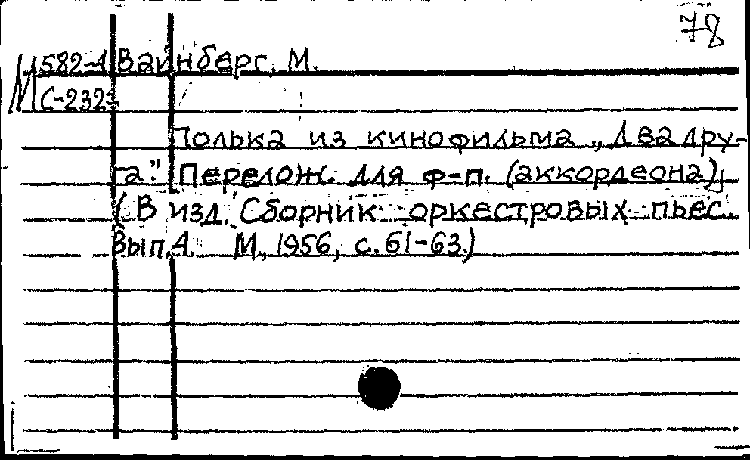 78
М582-1 Вайнберг, М.
С-232
Полька из кинофильма „Два дру-
га". Перелож. для ф-п. (аккордеона),
(В изд. Сборник оркестровых пьес.
Вып. 4. М., 1956, с. 61-63.)